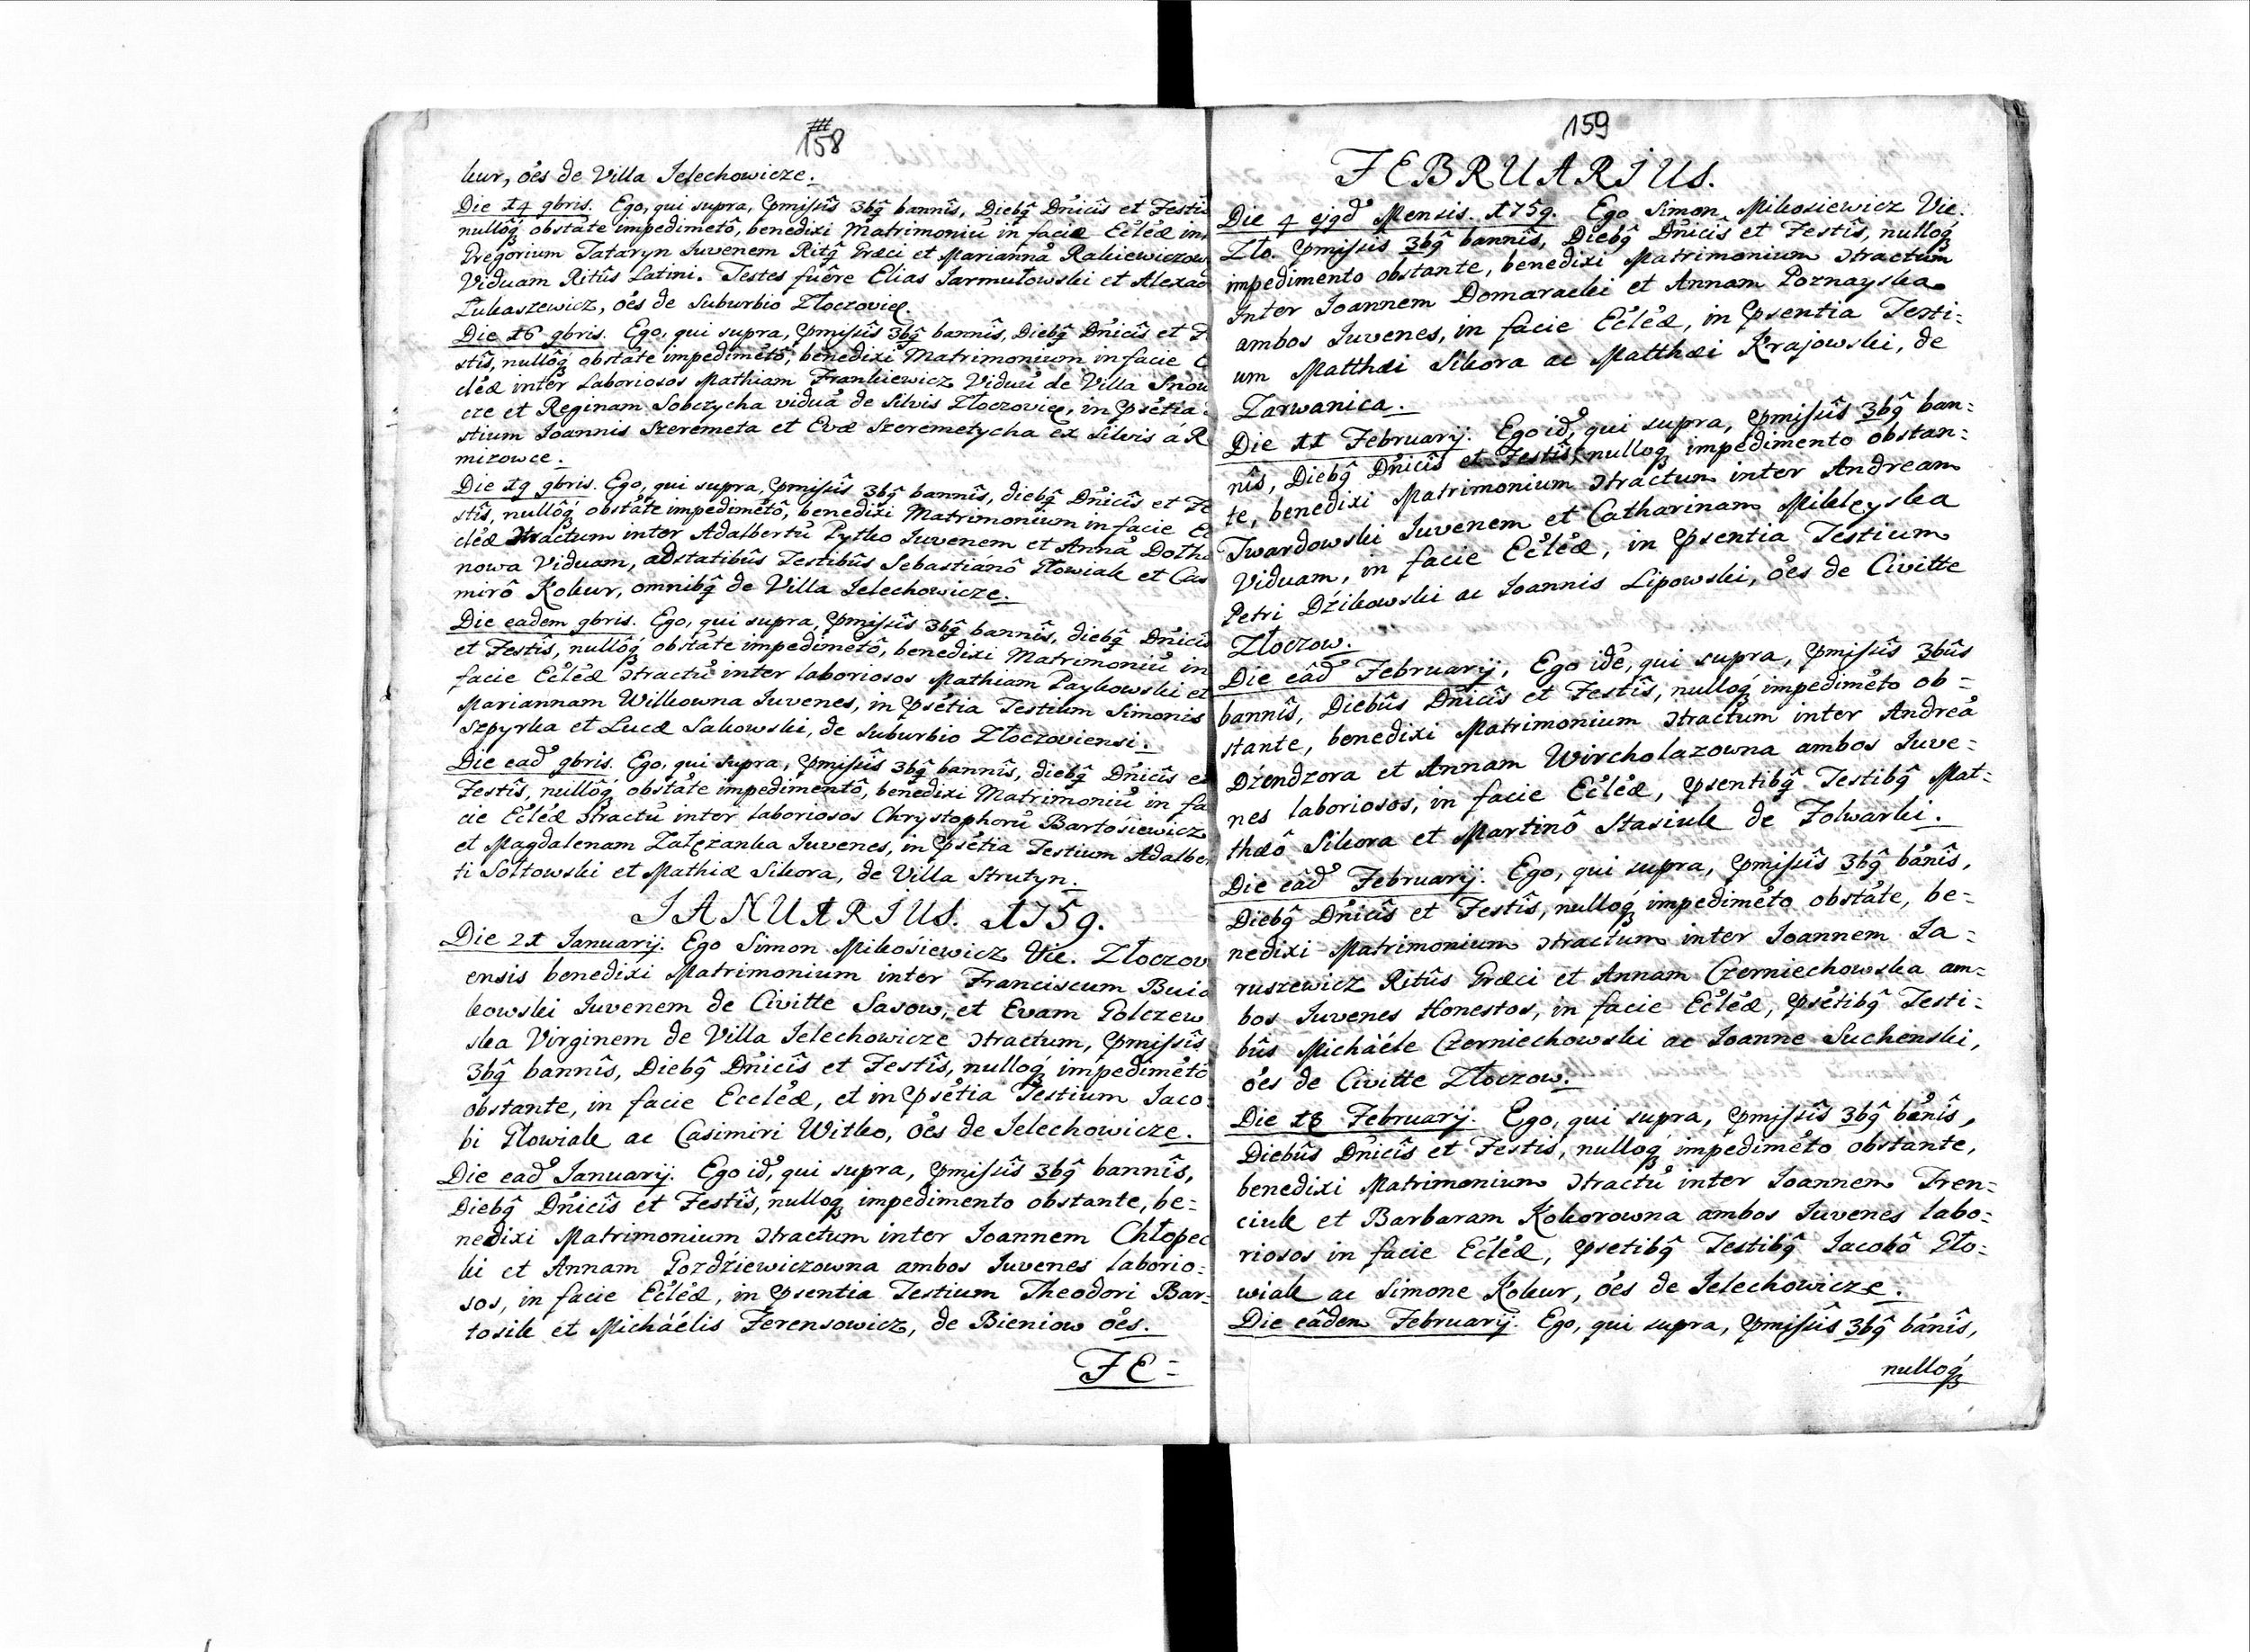 158
kur, oẽs de Villa Jelechowicze.
Die 14 9bris. Ego, qui supra, pmissîs 3bq̂ bannîs, Diebq̂ Dnicîs et Festîs
nullôq obstãte impedimẽtô, benedixi Matrimoniũ in faciæ Ecl̃eæ int
Gregorium Tataryn Iuvenem Ritq̂ Græci et Mariannã Rakiewiczow
Viduam Ritûs Latini. Testes fuêre Elias Jarmułowski et Alexad
Łukaszewicz, oẽs de Suburbio Złoczovie.
Die 16 9bris. Ego, qui supra, pmissîs 3bq̂ bannîs, Diebq̂ Dnicîs et F
stîs, nullôq obstãte impedimẽtô, benedixi Matrimonium in facie E
cl̃eæ intẽr Laboriosos Mathiam Frankiewicz Viduũ de Villa Snow
cze et Reginam Sobczycha viduã de Silvis Złoczovie, in psẽtia
stium Joannis Szeremeta et Evæ Szeremetycha ex Silvis á R
mizowce.
Die 19 9bris. Ego, qui supra, pmissîs 3bq̂ bannîs, diebq̂ Dnicîs et Fe
stîs, nullôq obstãte impedimẽtô, benedixi Matrimonium in facie Ec
cl̃eæ ↄtractum inter Adalbertũ Pytko Iuvenem et Annã Dotha
nowa Viduam, adstatibûs Testibûs Sebastiánô Głowiak et Cas
mirô Kokur, omnibq̂ de Villa Jelechowicze.
Die eadem 9bris. Ego, qui supra, pmissîs 3bq̂ bannîs, diebq̂ Dnicîs
et Festîs, nullôq obstãte impedimẽtô, benedixi Matrimoniũ in
facie Ecl̃eæ ↄtractũ inter laboriosos Mathiam Paykowski et
Mariannam Wilkowna Iuvenes, in psẽtia Testium Simonis
Szpyrka et Lucæ Sakowski, de Suburbio Złoczoviensi.
Die ead̃ 9bris. Ego, qui supra, pmissîs 3bq̂ bannîs, diebq̂ Dnicîs et
Festîs, nullôq obstãte impedimentô, benedixi Matrimoniũ in fa
cie Ecl̃eæ ↄtractũ inter laboriosos Chrystophorũ Bartosiewicz
et Magdalenam Załęzanka Iuvenes, in psẽtia Testium Adalber
ti Sołtowski et Mathiæ Sikora, de Villa Strutyn.
JANUARIUS. 1759.
Die 21 Januarij. Ego Simon Mikosiewicz Vic. Złoczov
ensis benedixi Matrimonium inter Franciscum Buia
kowski Iuvenem de Civitte Sasow, et Evam Golczew
ska Virginem de Villa Jelechowicze ↄtractum, pmissîs
3bq̂ bannîs, Diebq̂ Dnicîs et Festîs, nulloq impedimẽtô
obstante, in facie Eccl̃eæ, et in psẽtia Testium Jaco
bi Głowiak ac Casimiri Witko, oẽs de Jelechowicze.
Die ead̃ Januarij. Ego id̃, qui supra, pmissîs 3bq̂ bannîs,
Diebq̂ Dnicîs et Festîs, nulloq impedimento obstante, be=
nedixi Matrimonium ↄtractum inter Joannem Chłopec
ki et Annam Gozdziewiczowna ambos Iuvenes laborio=
sos, in facie Ecl̃eæ, in psentia Testium Theodori Bar=
tosik et Micháélis Ferensowicz, de Bieniow oẽs.
FE=
159
FEBRUARIUS.
Die 4 ejgd̃ Mensis. 1759. Ego Simon Mikosiewicz Vic.
Zło. pmissis 3bq̂ bannîs, Diebq̂ Dnicîs et Festîs, nullôq
impedimento obstante, benedixi Matrimonium ↄtractum
Inter Joannem Domaracki et Annam Poznayska
ambos Iuvenes, in facie Ecl̃eæ, in psentia Testi=
um Matthæi Sikora ac Matthæi Krajowski, de
Zarwanica.
Die 11 Februarij. Ego id̃, qui supra, pmissîs 3bq̂ ban=
nîs, Diebq̂ Dnicîs et Festîs, nulloq impedimento obstan=
te, benedixi Matrimonium ↄtractum inter Andream
Twardowski Iuvenem et Catharinam Mikleyska
Viduam, in facie Ecl̃eæ, in psentia Testium
Petri Dzikowski ac Joannis Lipowski, oẽs de Civitte
Złoczow.
Die eâd̃ Februarij. Ego idẽ, qui supra, pmissîs 3bûs
bannîs, Diebûs Dnicîs et Festîs, nulloq impedimẽto ob=
stante, benedixi Matrimonium ↄtractum inter Andreã
Dzendzora et Annam Wircholazowna ambos Iuve=
nes laboriosos, in facie Ecl̃eæ, psentibq̂ Testibq̂ Mat=
thæô Sikora et Martinô Stasiuk de Folwarki.
Die eâd̃ Februarij. Ego, qui supra, pmissîs 3bq̂ bãnîs,
Diebq̂ Dnicîs et Festîs, nulloq impedimẽto obstãte, be=
nedixi Matrimonium ↄtractum inter Joannem Ja=
ruszewicz Ritûs Græci et Annam Czerniechowska am=
bos Iuvenes Honestos, in facie Ecl̃eæ, psẽtibq̂ Testi=
bûs Micháéle Czerniechowski ac Joanne Suchenski,
oẽs de Civitte Złoczow.
Die 18 Februarij. Ego, qui supra, pmissîs 3bq̂ bãnîs,
Diebûs Dnicîs et Festis, nulloq impedimẽto obstante,
benedixi Matrimonium ↄtractũ inter Joannem Fren=
ciuk et Barbaram Kokorowna ambos Iuvenes labo=
riosos in facie Ecl̃eæ, psetibq̂ Testibq̂ Jacobô Gło=
wiak ac Simone Kokur, oẽs de Jelechowicze.
Die eâdem Februarij. Ego, qui supra, pmissîs 3bq̂ bánîs,
nulloq